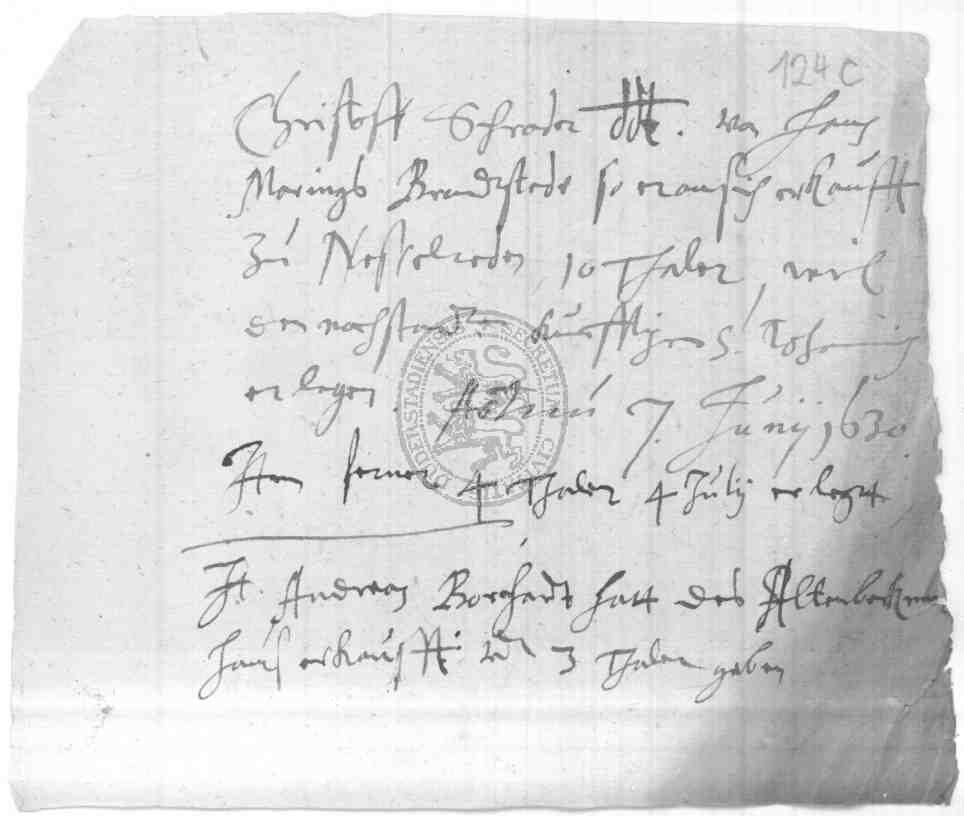 124 C
Christoff Schroder ddt. von Hans
Marings Brandtstede so er an sich erkaufft
zu Nesselreden 10 Thaler, weil
den nachstandt künfftigen S. Johannis
erlegen. Actum 7. Junij 1630
Item ferner 4 Thaler 4 July erlegtt
It. Andreas Borchardt hatt des Altenbecken
hauß erkaufft 3 Thaler geben
SECRETUM CIV
DUDERSTADIENS